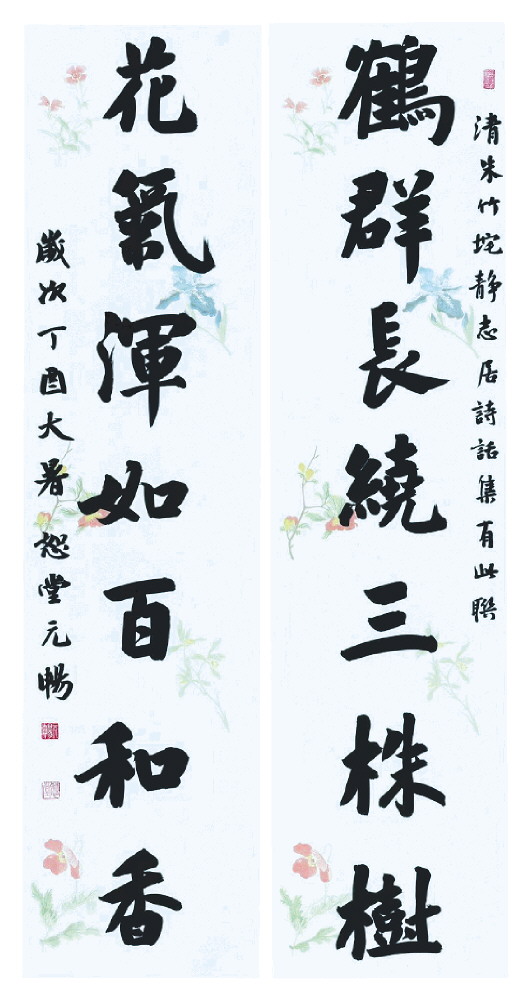 清朱竹垞静志居詩話集有此聨
鶴群長繞三株樹
花氣渾如百和香
歲次丁酉大暑恕堂元暢